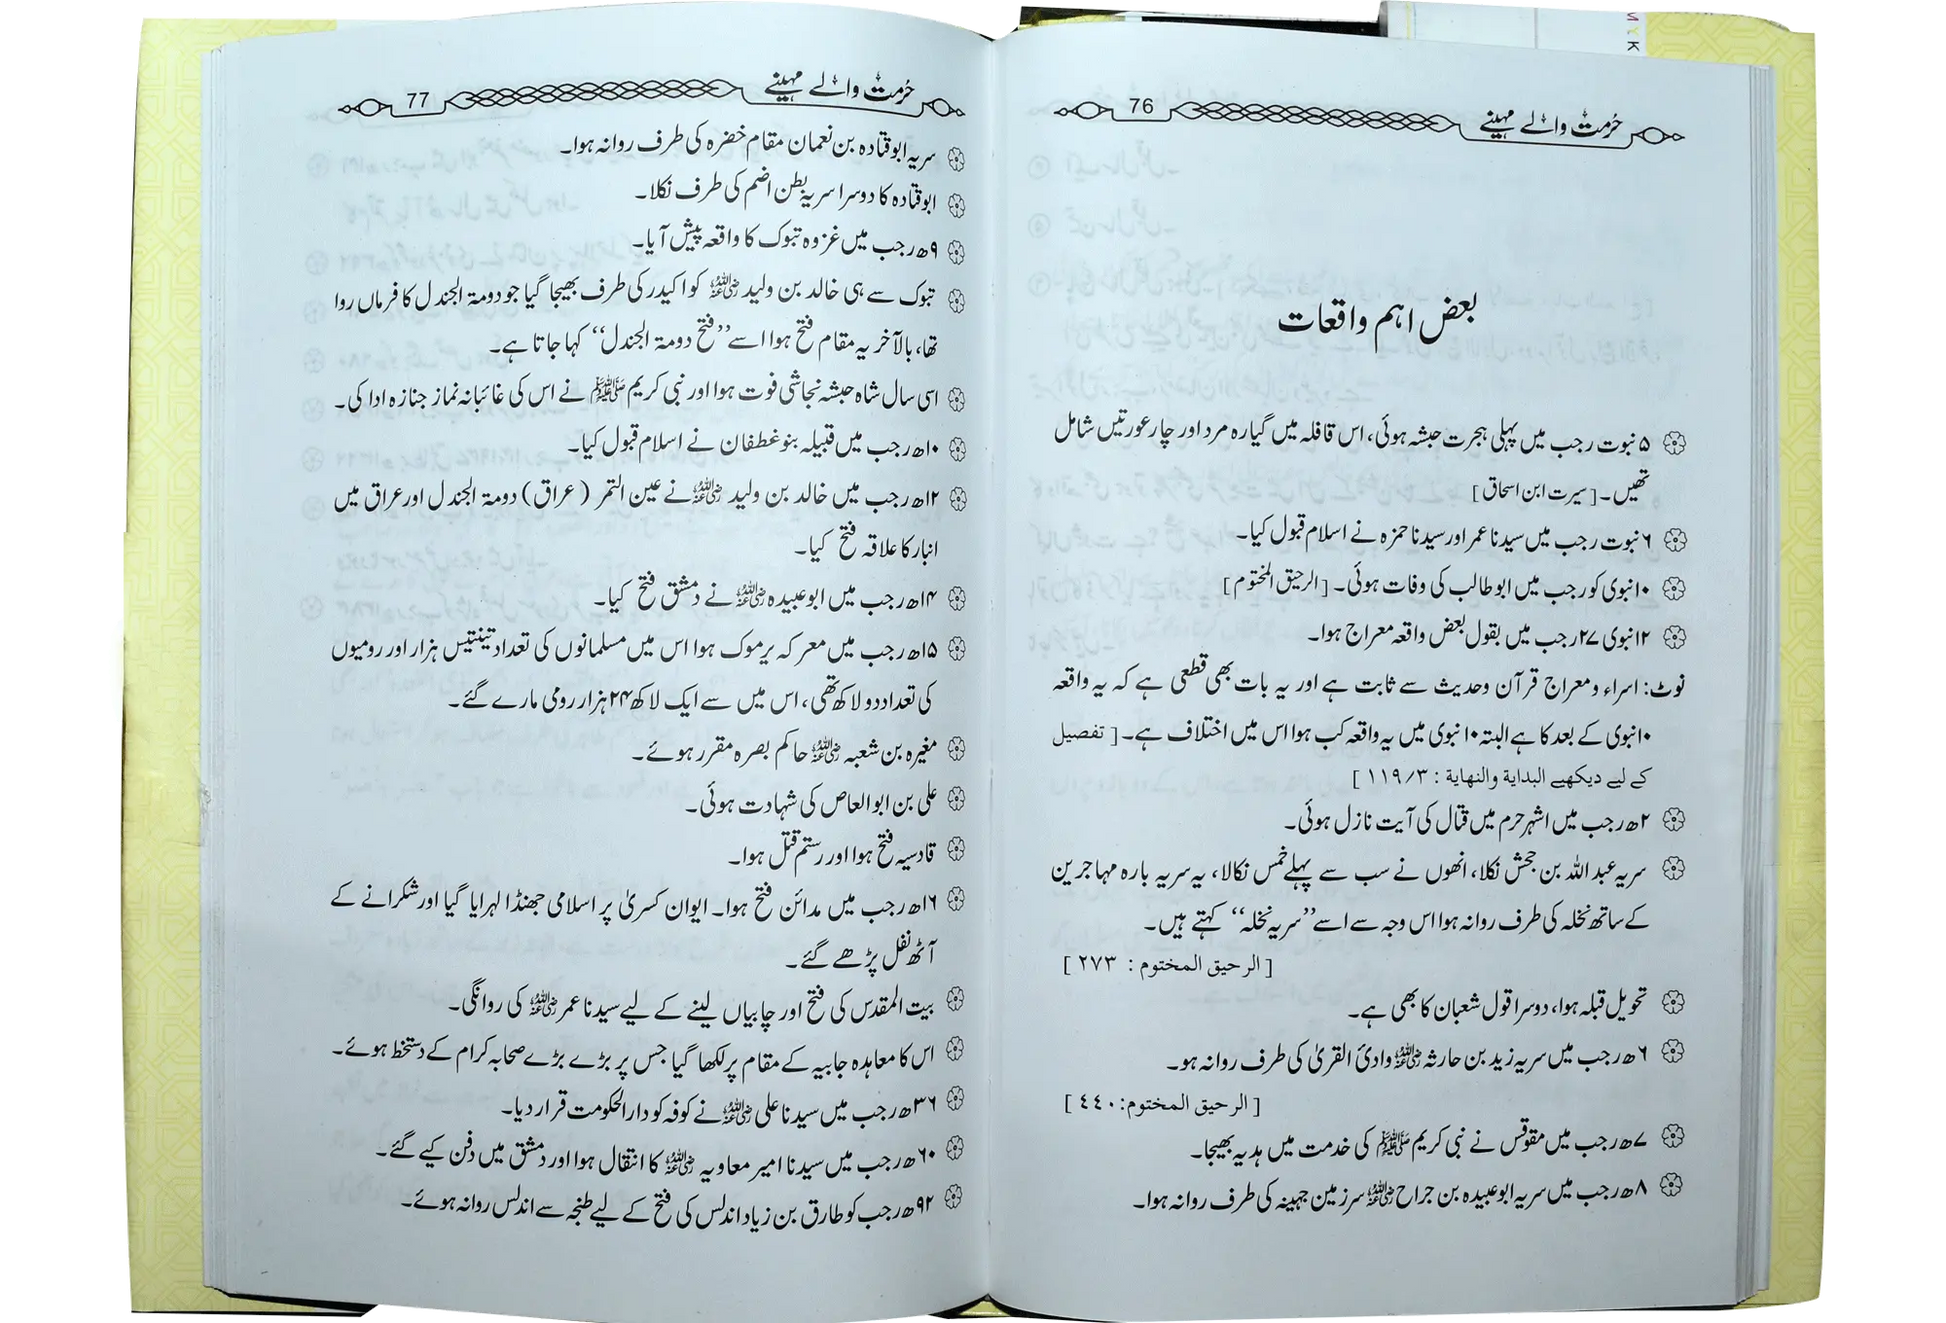 حُرمت والے مہینے 76
بعض اہم واقعات
۵ نبوت رجب میں پہلی ہجرت حبشہ ہوئی، اس قافلہ میں گیارہ مرد اور چار عورتیں شامل
تھیں۔ [سیرت ابن اسحاق]
۶ نبوت رجب میں سیدنا عمر اور سیدنا حمزہ نے اسلام قبول کیا۔
۱۰ نبوی کو رجب میں ابو طالب کی وفات ہوئی۔ [الرحیق المختوم]
۱۲ نبوی ۲۷ رجب میں بقول بعض واقعہ معراج ہوا۔
نوٹ: اسراء ومعراج قرآن وحدیث سے ثابت ہے اور یہ بات بھی قطعی ہے کہ یہ واقعہ
۱۰ نبوی کے بعد کا ہے البتہ ۱۰ نبوی میں یہ واقعہ کب ہوا اس میں اختلاف ہے۔ [تفصیل
کے لیے دیکھیے البداية والنهاية : ۳/۱۱۹]
۲ھ رجب میں اشہر حرم میں قتال کی آیت نازل ہوئی۔
سریہ عبد اللہ بن جحش نکلا، انھوں نے سب سے پہلے خمس نکالا، یہ سریہ بارہ مہاجرین
کے ساتھ نخلہ کی طرف روانہ ہوا اس وجہ سے اسے ’’سریہ نخلہ‘‘ کہتے ہیں۔
[الرحیق المختوم : ۲۷۳]
تحویل قبلہ ہوا، دوسرا قول شعبان کا بھی ہے۔
۶ھ رجب میں سریہ زید بن حارثہ رضی اللہ عنہ وادیٔ القریٰ کی طرف روانہ ہو۔
[الرحیق المختوم: ٤٤٠]
۷ھ رجب میں مقوقس نے نبی کریم ﷺ کی خدمت میں ہدیہ بھیجا۔
۸ھ رجب میں سریہ ابو عبیدہ بن جراح رضی اللہ عنہ سرزمین جہینہ کی طرف روانہ ہوا۔
حُرمت والے مہینے 77
سریہ ابو قتادہ بن نعمان مقام خضرہ کی طرف روانہ ہوا۔
ابو قتادہ کا دوسرا سریہ بطن اضم کی طرف نکلا۔
۹ھ رجب میں غزوہ تبوک کا واقعہ پیش آیا۔
تبوک سے ہی خالد بن ولید رضی اللہ عنہ کو اکیدر کی طرف بھیجا گیا جو دومۃ الجندل کا فرماں روا
تھا، بالآخر یہ مقام فتح ہوا اسے ’’فتح دومۃ الجندل‘‘ کہا جاتا ہے۔
اسی سال شاہ حبشہ نجاشی فوت ہوا اور نبی کریم ﷺ نے اس کی غائبانہ نماز جنازہ ادا کی۔
۱۰ھ رجب میں قبیلہ بنو غطفان نے اسلام قبول کیا۔
۱۲ھ رجب میں خالد بن ولید رضی اللہ عنہ نے عین التمر (عراق) دومۃ الجندل اور عراق میں
انبار کا علاقہ فتح کیا۔
۱۴ھ رجب میں ابو عبیدہ رضی اللہ عنہ نے دمشق فتح کیا۔
۱۵ھ رجب میں معرکہ یرموک ہوا اس میں مسلمانوں کی تعداد تینتیس ہزار اور رومیوں
کی تعداد دو لاکھ تھی، اس میں سے ایک لاکھ ۲۴ ہزار رومی مارے گئے۔
مغیرہ بن شعبہ رضی اللہ عنہ حاکم بصرہ مقرر ہوئے۔
علی بن ابو العاص کی شہادت ہوئی۔
قادسیہ فتح ہوا اور رستم قتل ہوا۔
۱۶ھ رجب میں مدائن فتح ہوا۔ ایوان کسریٰ پر اسلامی جھنڈا لہرایا گیا اور شکرانے کے
آٹھ نفل پڑھے گئے۔
بیت المقدس کی فتح اور چابیاں لینے کے لیے سیدنا عمر رضی اللہ عنہ کی روانگی۔
اس کا معاہدہ جابیہ کے مقام پر لکھا گیا جس پر بڑے بڑے صحابہ کرام کے دستخط ہوئے۔
۳۶ھ رجب میں سیدنا علی رضی اللہ عنہ نے کوفہ کو دارالحکومت قرار دیا۔
۶۰ھ رجب میں سیدنا امیر معاویہ رضی اللہ عنہ کا انتقال ہوا اور دمشق میں دفن کیے گئے۔
۹۲ھ رجب کو طارق بن زیاد اندلس کی فتح کے لیے طنجہ سے اندلس روانہ ہوئے۔